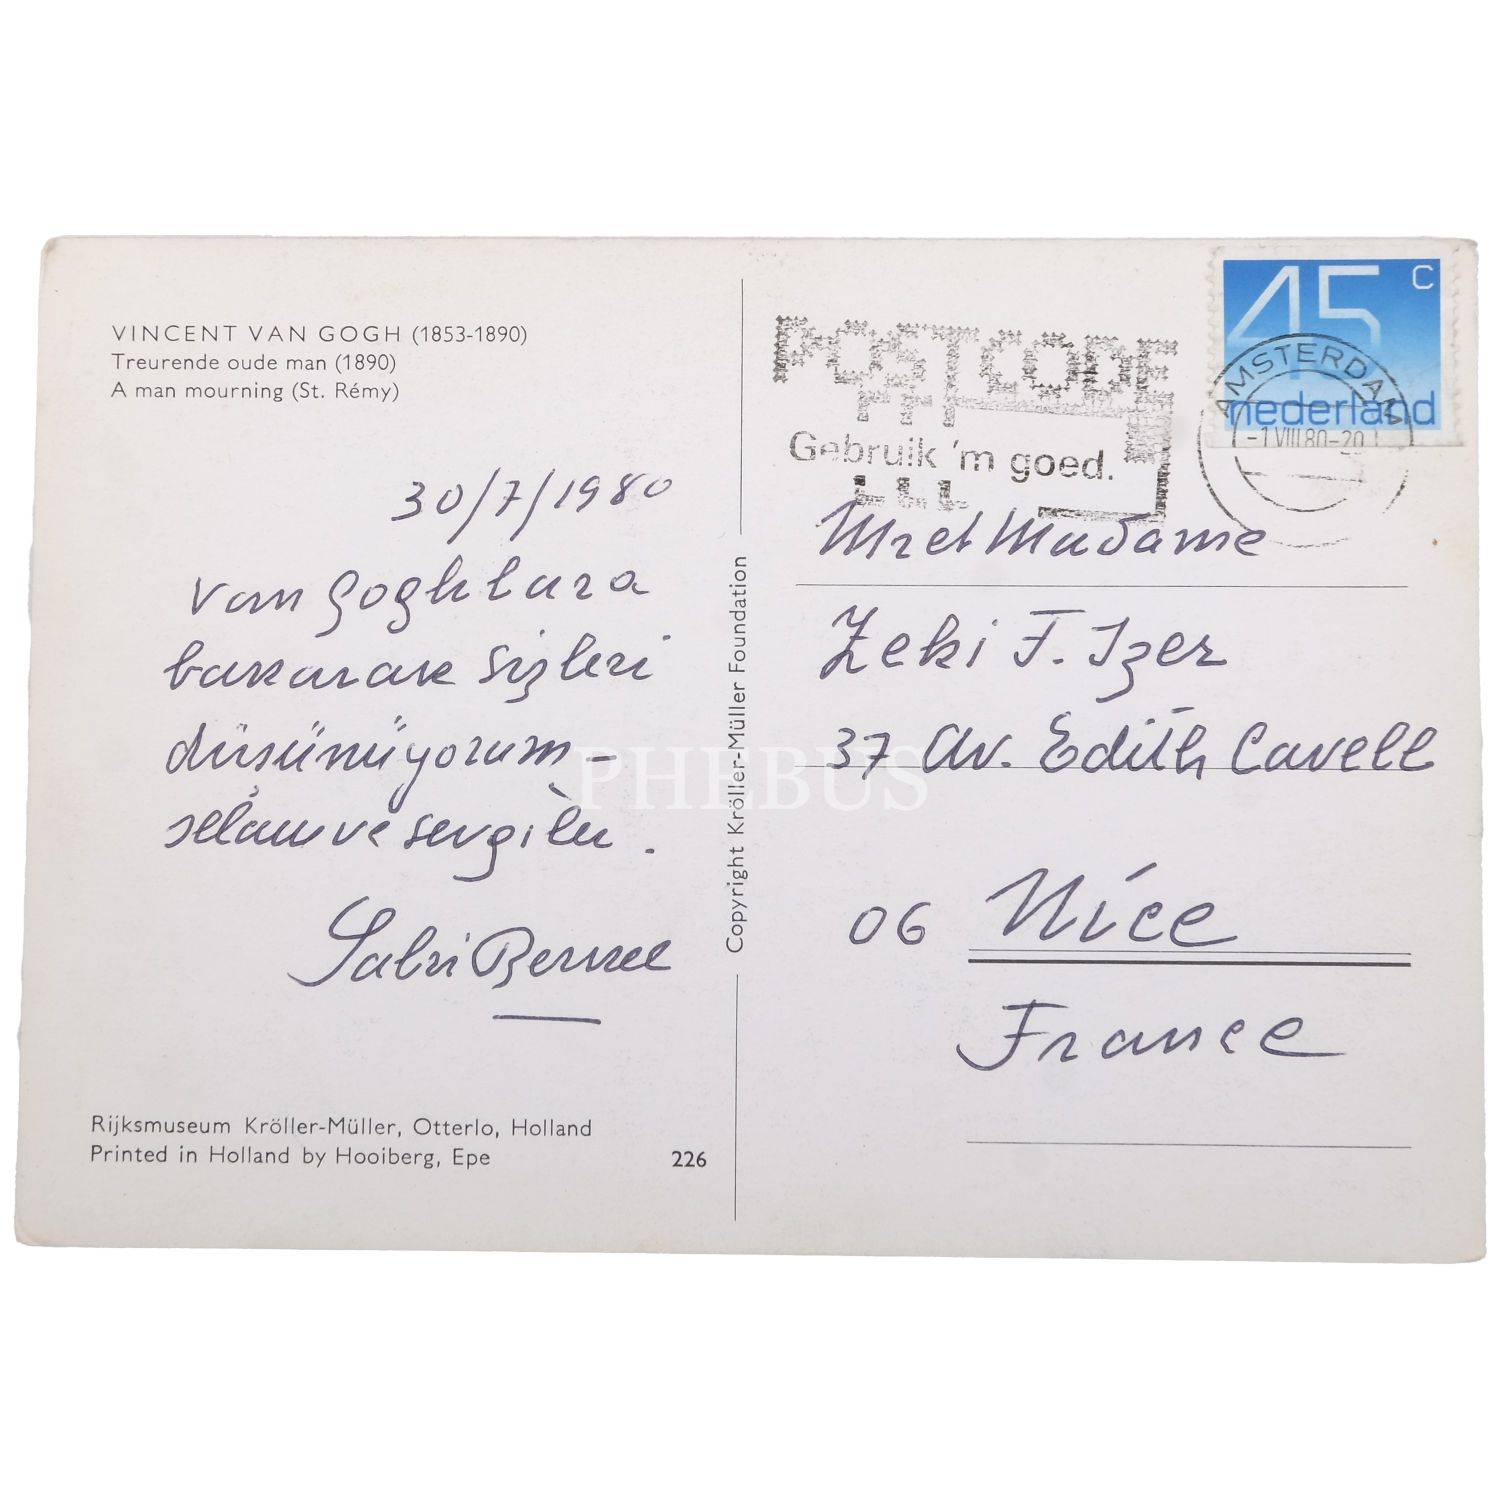 VINCENT VAN GOGH (1853-1890)
Treurende oude man (1890)
A man mourning (St. Rémy)
30/7/1980
Van Goghlara
bakarak sizleri
düşünüyorum –
selam ve sevgiler.
Sabri Berkel
Rijksmuseum Kröller-Müller, Otterlo, Holland
Printed in Holland by Hooiberg, Epe
226
Copyright Kröller-Müller Foundation
PHEBUS
POSTCODE
Gebruik 'm goed.
45 c
nederland
AMSTERDAM
-1 VIII 80-20
Mr et Madame
Zeki F. Izer
37 Av. Edith Cavell
06 Nice
France